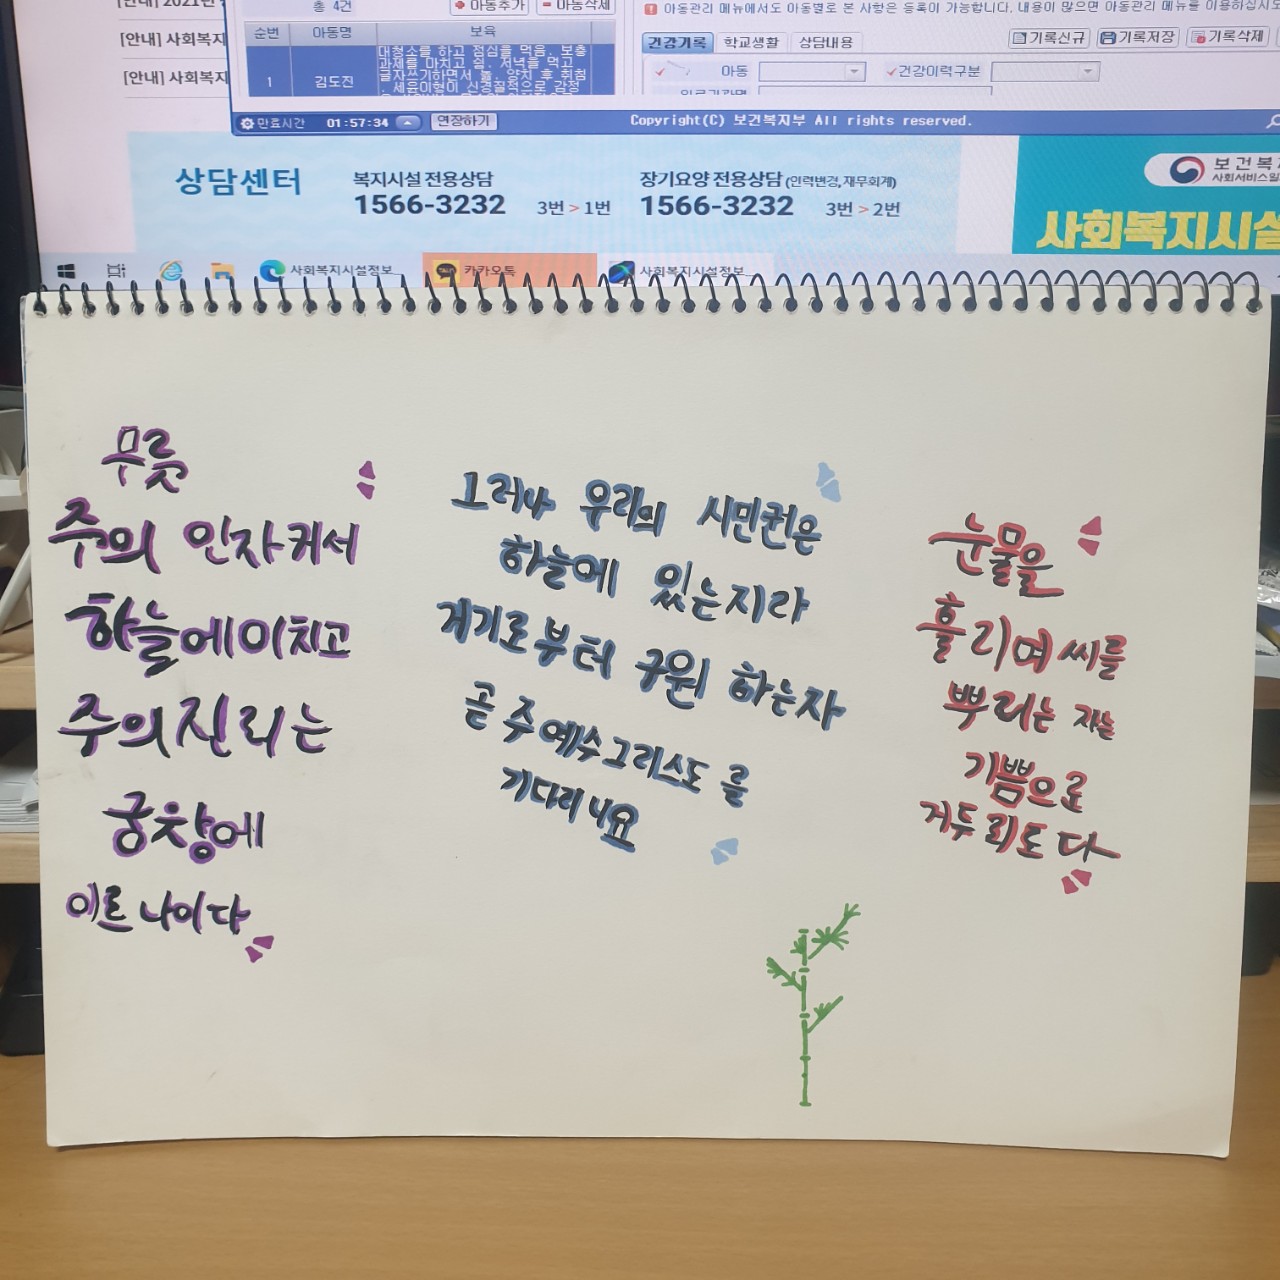 [안내] 2021년
[안내] 사회복지
[안내] 사회복지
총 4건
아동추가
아동삭제
순번 아동명 보육
1 김도진
대청소를 하고 점심을 먹음. 보충
과제를 마치고 쉼. 저녁을 먹고
글자쓰기하면서 놈. 양치 후 취침
. 세윤이형이 신경질적으로 감정
아동관리 메뉴에서도 아동별로 본 사항은 등록이 가능합니다. 내용이 많으면 아동관리 메뉴를 이용하십시오
건강기록 학교생활 상담내용
기록신규 기록저장 기록삭제
아동 건강이력구분
만료시간 01:57:34 연장하기
Copyright(C) 보건복지부 All rights reserved.
상담센터
복지시설 전용상담
1566-3232 3번 > 1번
장기요양 전용상담 (인력변경, 재무회계)
1566-3232 3번 > 2번
보건복지
사회서비스일
사회복지시설
사회복지시설정보...
카카오톡
사회복지시설정보...
무릇
주의 인자커서
하늘에미치고
주의진리는
궁창에
이르나이다
그러나 우리의 시민권은
하늘에 있는지라
거기로부터 구원 하는자
곧 주 예수그리스도 를
기다리니요
눈물을
흘리며씨를
뿌리는 자는
기쁨으로
거두리로다